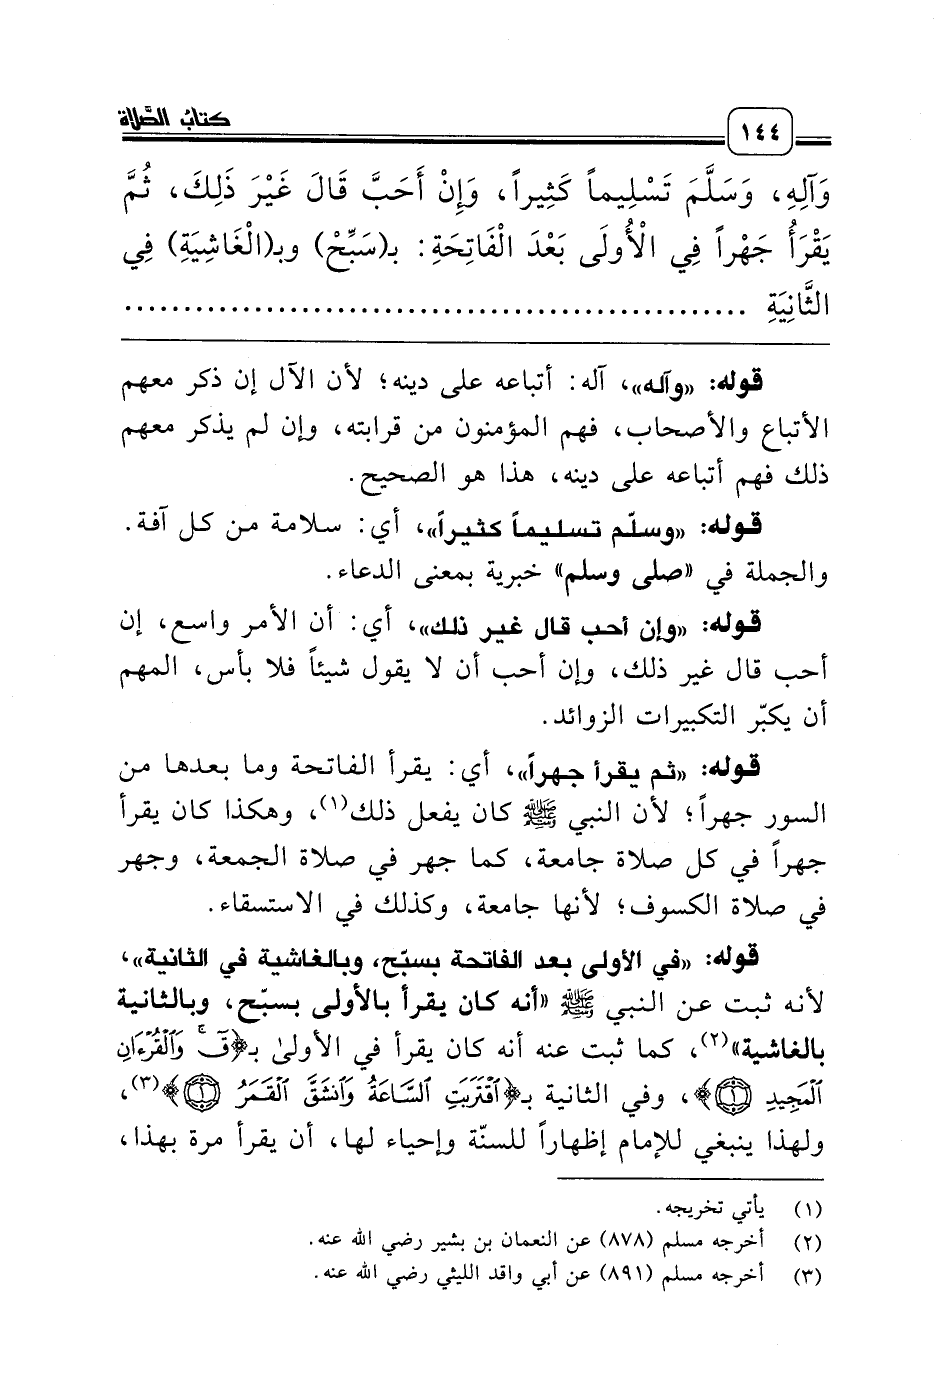 كتاب الصَّلاة
١٤٤
وَآلِهِ، وَسَلَّمَ تَسْلِيماً كَثِيراً، وَإِنْ أَحَبَّ قَالَ غَيْرَ ذَلِكَ، ثُمَّ
يَقْرَأُ جَهْراً فِي الْأُولَى بَعْدَ الْفَاتِحَةِ: بـ(سَبِّحْ) وبـ(الْغَاشِيَةِ) فِي
الثَّانِيَةِ ....................................................
قوله: «وآله»، آله: أتباعه على دينه؛ لأن الآل إن ذكر معهم
الأتباع والأصحاب، فهم المؤمنون من قرابته، وإن لم يذكر معهم
ذلك فهم أتباعه على دينه، هذا هو الصحيح.
قوله: «وسلّم تسليماً كثيراً»، أي: سلامة من كل آفة.
والجملة في «صلى وسلم» خبرية بمعنى الدعاء.
قوله: «وإن أحب قال غير ذلك»، أي: أن الأمر واسع، إن
أحب قال غير ذلك، وإن أحب أن لا يقول شيئاً فلا بأس، المهم
أن يكبّر التكبيرات الزوائد.
قوله: «ثم يقرأ جهراً»، أي: يقرأ الفاتحة وما بعدها من
السور جهراً؛ لأن النبي ﷺ كان يفعل ذلك(١)، وهكذا كان يقرأ
جهراً في كل صلاة جامعة، كما جهر في صلاة الجمعة، وجهر
في صلاة الكسوف؛ لأنها جامعة، وكذلك في الاستسقاء.
قوله: «في الأولى بعد الفاتحة بسبّح، وبالغاشية في الثانية»،
لأنه ثبت عن النبي ﷺ «أنه كان يقرأ بالأولى بسبّح، وبالثانية
بالغاشية»(٢)، كما ثبت عنه أنه كان يقرأ في الأولىٰ بـ﴿قٓۚ وَٱلۡقُرۡءَانِ
ٱلۡمَجِيدِ ١﴾، وفي الثانية بـ﴿ٱقۡتَرَبَتِ ٱلسَّاعَةُ وَٱنشَقَّ ٱلۡقَمَرُ ١﴾(٣)،
ولهذا ينبغي للإمام إظهاراً للسنّة وإحياء لها، أن يقرأ مرة بهذا،
(١) يأتي تخريجه.
(٢) أخرجه مسلم (٨٧٨) عن النعمان بن بشير رضي الله عنه.
(٣) أخرجه مسلم (٨٩١) عن أبي واقد الليثي رضي الله عنه.